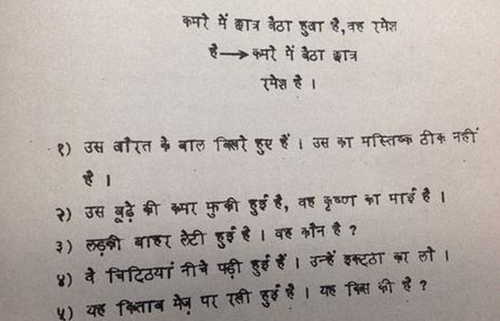 कमरे में छात्र बैठा हुवा है, वह रमेश
है → कमरे में बैठा छात्र
रमेश है ।
१) उस औरत के बाल बिखरे हुए हैं । उस का मस्तिष्क ठीक नहीं
है ।
२) उस बूढ़े की कमर झुकी हुई है, वह कृष्ण का भाई है ।
३) लड़की बाहर लेटी हुई है । वह कौन है ?
४) वे चिट्ठियां नीचे पड़ी हुई हैं । उन्हें इकट्ठा कर लो ।
५) यह किताब मेज़ पर रखी हुई है । यह किस की है ?